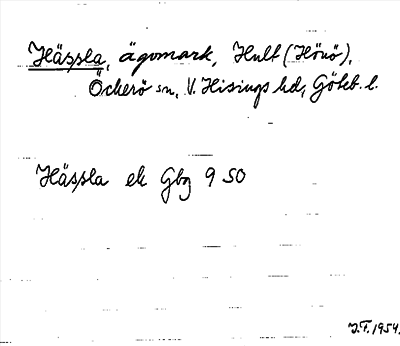 Hässla, ägomark, Hult (Hönö),
Öckerö sn, V. Hisings hd, Göteb. l.
Hässla ek Gbg 9 SO
J.F. 1954.